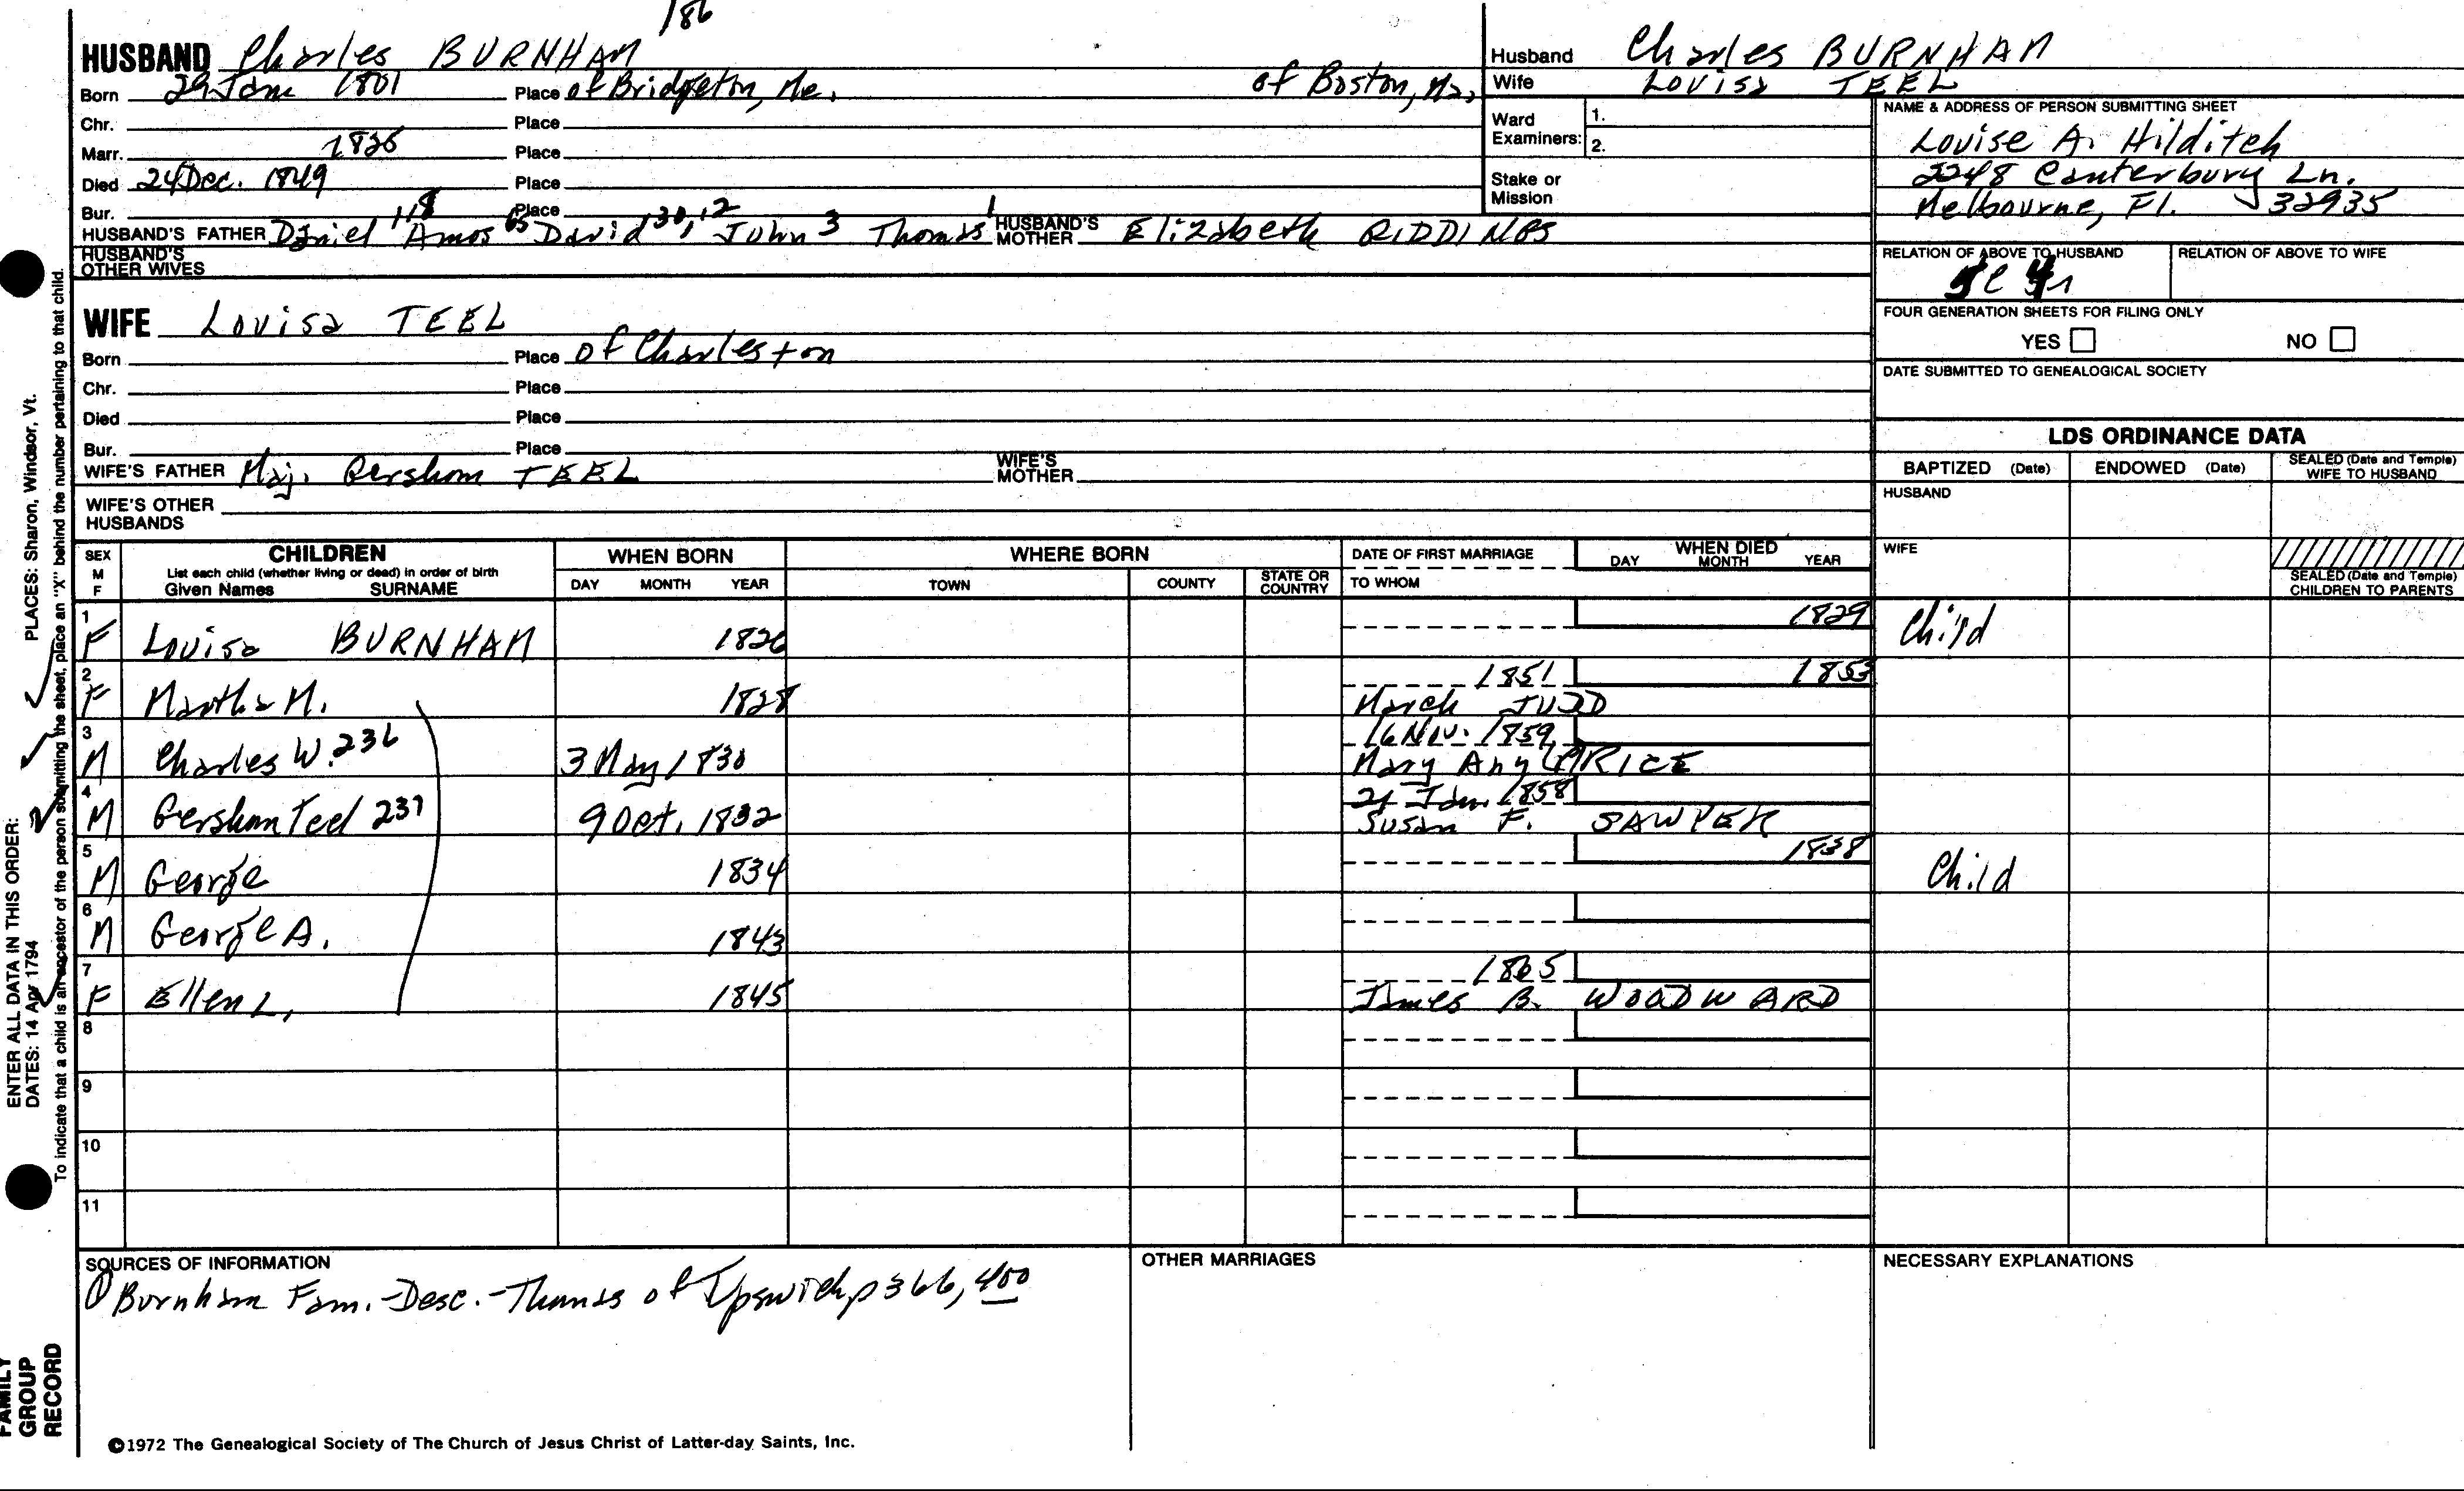 186
HUSBAND Charles BURNHAM
Born 29 Jan 1801 Place of Bridgeton, Me. of Boston, Ms,
Chr. Place
Marr. 1825 Place
Died 24 Dec. 1849 Place
Bur. Place
HUSBAND'S FATHER Daniel 118 Amos 65 David 30, 12 John 3 Thomas 1 HUSBAND'S MOTHER Elizabeth RIDDINGS
HUSBAND'S OTHER WIVES
WIFE Louisa TEEL
Born Place of Charleston
Chr. Place
Died Place
Bur. Place
WIFE'S FATHER Maj. Gershom TEEL WIFE'S MOTHER
WIFE'S OTHER HUSBANDS
Husband Charles BURNHAM
Wife Louisa TEEL
Ward Examiners: 1.
2.
Stake or Mission
NAME & ADDRESS OF PERSON SUBMITTING SHEET
Louise A. Hilditch
2248 Canterbury Ln.
Melbourne, Fl. 32935
RELATION OF ABOVE TO HUSBAND RELATION OF ABOVE TO WIFE
FOUR GENERATION SHEETS FOR FILING ONLY
YES NO
DATE SUBMITTED TO GENEALOGICAL SOCIETY
LDS ORDINANCE DATA
BAPTIZED (Date) ENDOWED (Date) SEALED (Date and Temple) WIFE TO HUSBAND
HUSBAND
WIFE
SEALED (Date and Temple) CHILDREN TO PARENTS
SEX M F CHILDREN WHEN BORN WHERE BORN DATE OF FIRST MARRIAGE WHEN DIED
List each child (whether living or dead) in order of birth
Given Names SURNAME DAY MONTH YEAR TOWN COUNTY STATE OR COUNTRY TO WHOM DAY MONTH YEAR
1 F Louisa BURNHAM 1826 1829 Child
2 F Martha M. 1828 1851 1853
March JUDD
3 M Charles W. 236 3 May 1830 16 Nov. 1859
Mary Any PRICE
4 M Gershom Teel 237 9 Oct. 1832 21 Jan. 1858
Susan F. SAWYER
5 M George 1834 1838 Child
6 M George A. 1843
7 F Ellen L. 1845 1865
James B. WOODWARD
8
9
10
11
SOURCES OF INFORMATION
Burnham Fam. - Desc. - Thomas of Ipswich, p 366, 400
OTHER MARRIAGES
NECESSARY EXPLANATIONS
©1972 The Genealogical Society of The Church of Jesus Christ of Latter-day Saints, Inc.
ENTER ALL DATA IN THIS ORDER: PLACES: Sharon, Windsor, Vt.
DATES: 14 Apr 1794
To indicate that a child is an ancestor of the person submitting the sheet, place an "X" behind the number pertaining to that child.
FAMILY
GROUP
RECORD